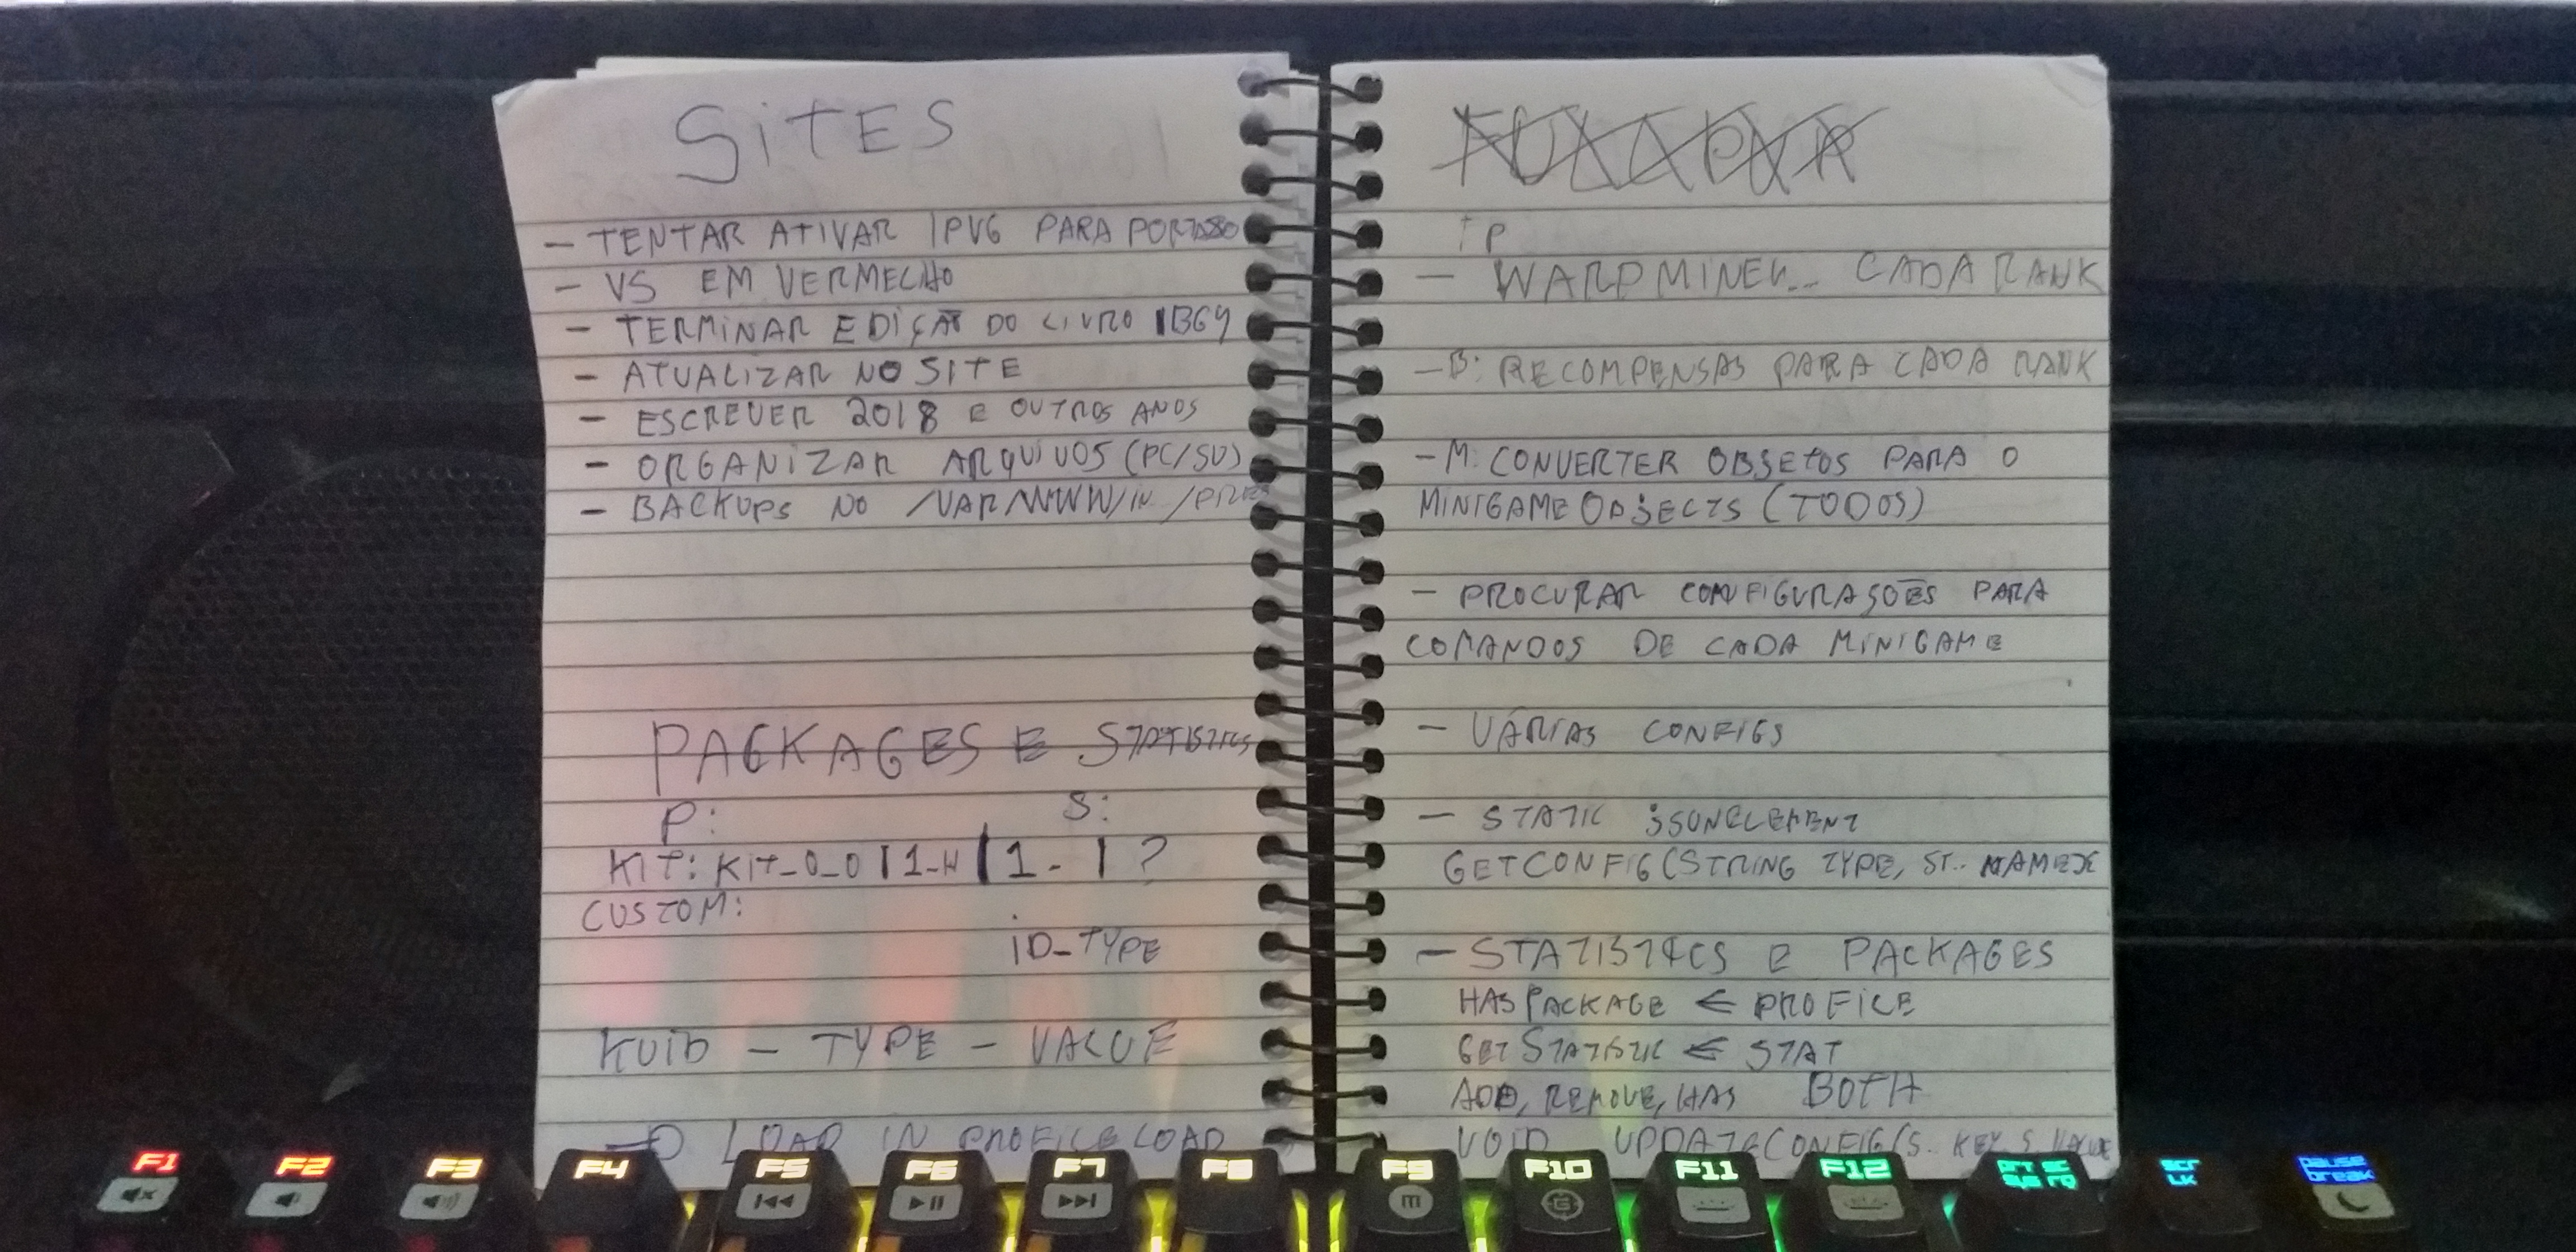 SiTES
- TENTAR ATIVAR IPV6 PARA
- VS EM VERMELHO
- TERMINAR EDIÇÃO DO LIVRO
- ATUALIZAR NO SITE
- ESCREVER 2018 E OUTROS ANOS
- ORGANIZAR ARQUIVOS (PC/SV)
- BACKUPS NO /VAR/WWW/
PACKAGES E STATISTICS
P: S:
KIT: KIT_0_0 | 1_H | 1- | ?
CUSTOM:
iD_TYPE
KUID - TYPE - VALUE
LOAD IN PROFILELOAD
- CADA RANK
- B: RECOMPENSAS PARA CADA RANK
- M: CONVERTER OBJETOS PARA O
MINIGAMEOBJECTS (TODOS)
- PROCURAR CONFIGURAÇÕES PARA
COMANDOS DE CADA MINIGAME
- VÁRIAS CONFIGS
- STATIC JSONELEMENT
GETCONFIG(STRING TYPE, ST..
- STATISTICS E PACKAGES
HASPACKAGE <- PROFILE
GETSTATISTIC <- STAT
ADD, REMOVE, HAS BOTH
VOID UPDATECONFIG(S.. KEY, S VALUE
F1 F2 F3 F4 F5 F6 F7 F8 F9 F10 F11 F12 prt sc sys rq scr lk pause break